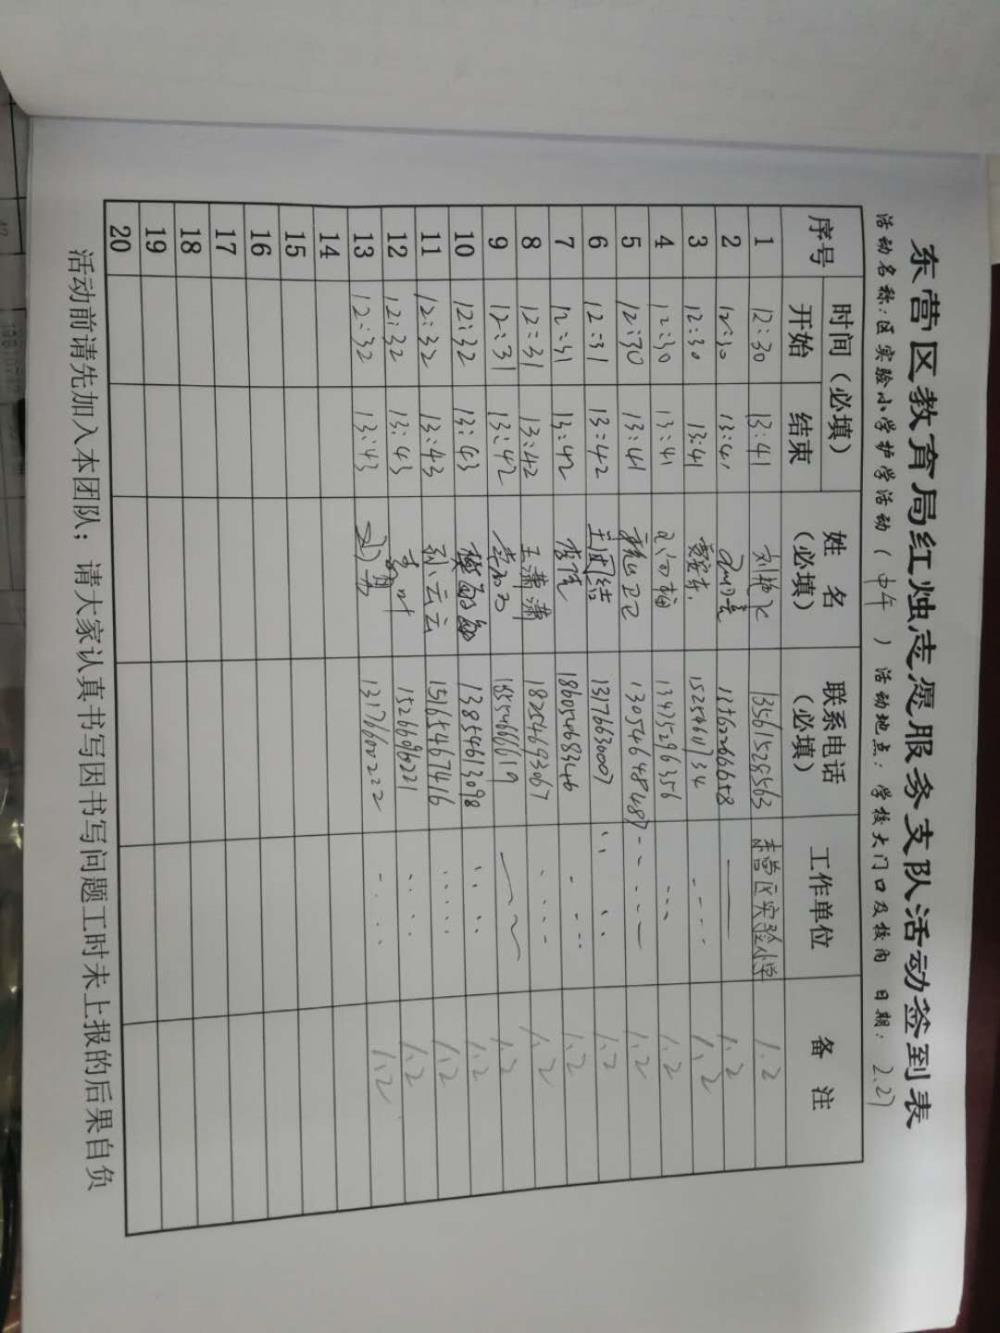 东营区教育局红烛志愿服务支队活动签到表
活动名称:区实验小学护学活动(中午 ) 活动地点:学校大门口及校门 日期: 2.27
序号 时间(必填) 开始 结束 姓名(必填) 联系电话(必填) 工作单位 备注
1 12:30 13:41 刘艳 13561528563 东营区实验小学 1.2
2 12:30 13:41 1.2
3 12:30 13:41 15254611734 1.2
4 12:30 13:41 13475296356 1.2
5 12:30 13:41 13054648487 1.2
6 12:31 13:42 王团结 13176630007 1.2
7 12:31 13:42 李 18605468346 1.2
8 12:31 13:42 王潇潇 18254693067 1.2
9 12:31 13:42 18554666619 1.2
10 12:32 13:43 13854613098 1.2
11 12:32 13:43 孙云云 15165467416 1.2
12 12:32 13:43 15266096221 1.2
13 12:32 13:43 13176600222 1.2
14
15
16
17
18
19
20
活动前请先加入本团队;请大家认真书写因书写问题工时未上报的后果自负